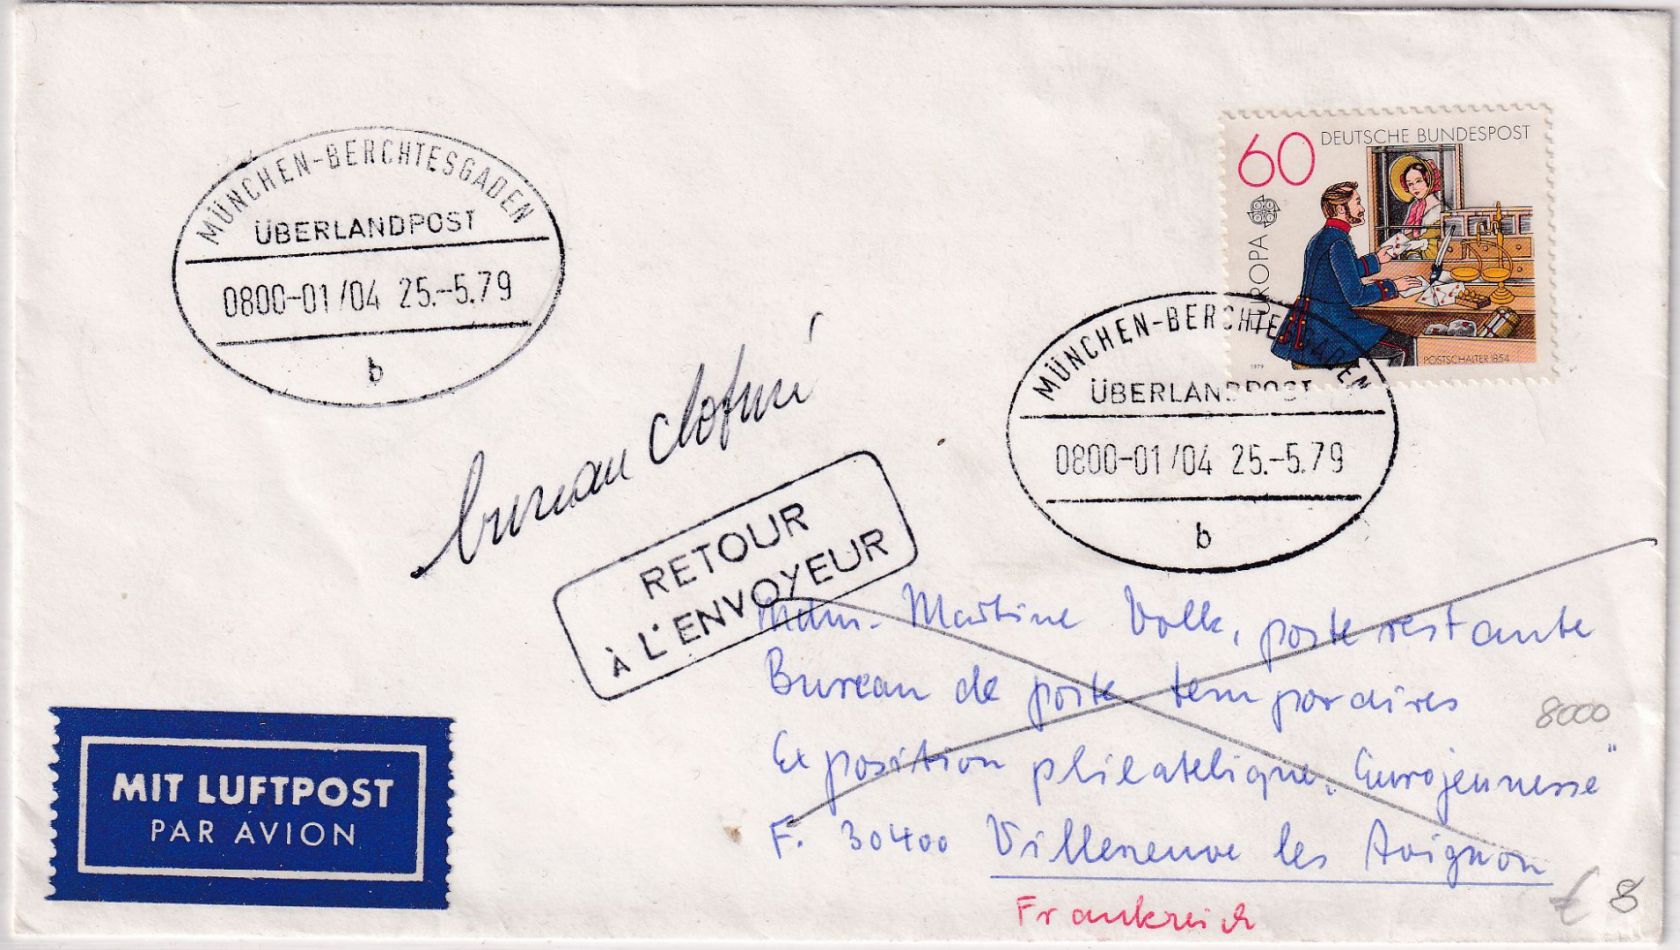 MÜNCHEN-BERCHTESGADEN
ÜBERLANDPOST
0800-01/04 25.-5.79
b
60
DEUTSCHE BUNDESPOST
EUROPA
POSTSCHALTER 1854
1979
MÜNCHEN-BERCHTESGADEN
ÜBERLANDPOST
0800-01/04 25.-5.79
b
bureau
RETOUR
À L'ENVOYEUR
Mdm. Martine Volk, poste restante
Bureau de poste temporaires
Exposition philatelique „Eurojeunesse“
F. 30400 Villeneuve les Avignon
Frankreich
8000
€ 8
MIT LUFTPOST
PAR AVION